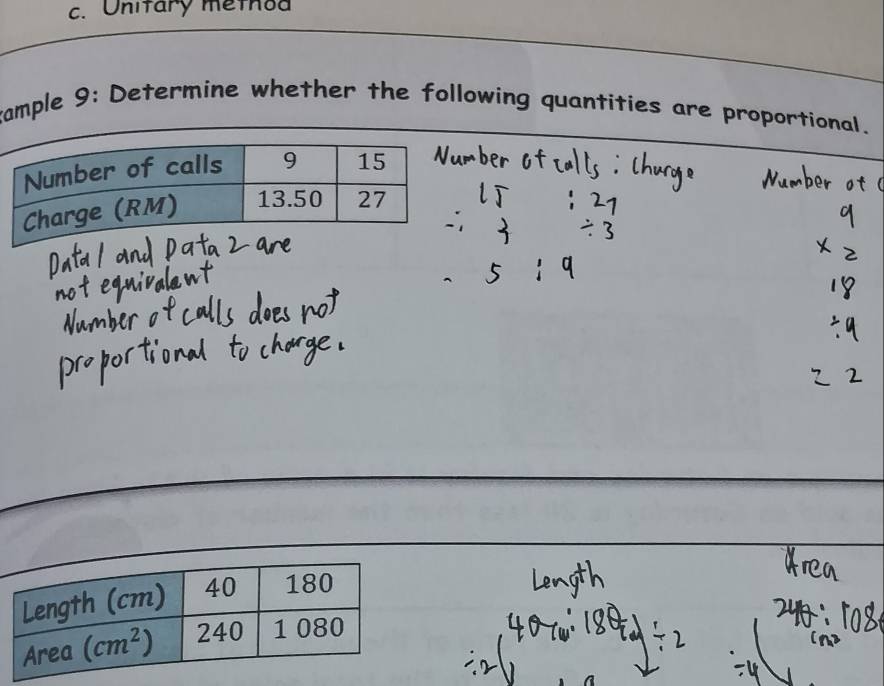 c. Unitary method
ample 9: Determine whether the following quantities are proportional.
Number of calls 9 15
Charge (RM) 13.50 27
Data 1 and Data 2 are
not equivalent
Number of calls does not
proportional to charge.
Number of calls : Charge
15 : 27
÷ 3 ÷ 3
5 : 9
Number of
9
× 2
18
÷ 9
= 2
Length (cm) 40 180
Area (cm²) 240 1 080
Length
40 cm : 180 cm
÷2 ÷2
Area
240 : 108
cm²
÷4